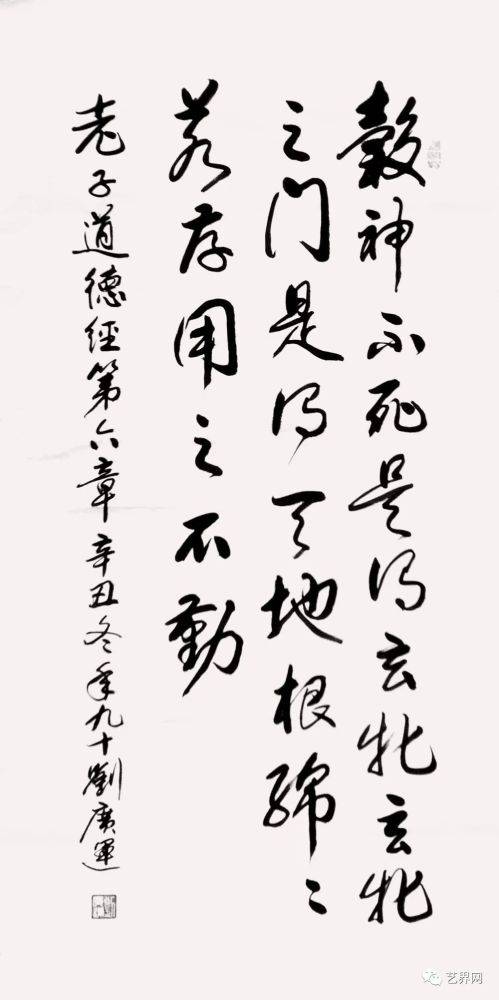 穀神不死是謂玄牝玄牝
之门是謂天地根綿〻
若存用之不勤
老子道德經第六章辛丑冬年九十劉廣運
艺界网